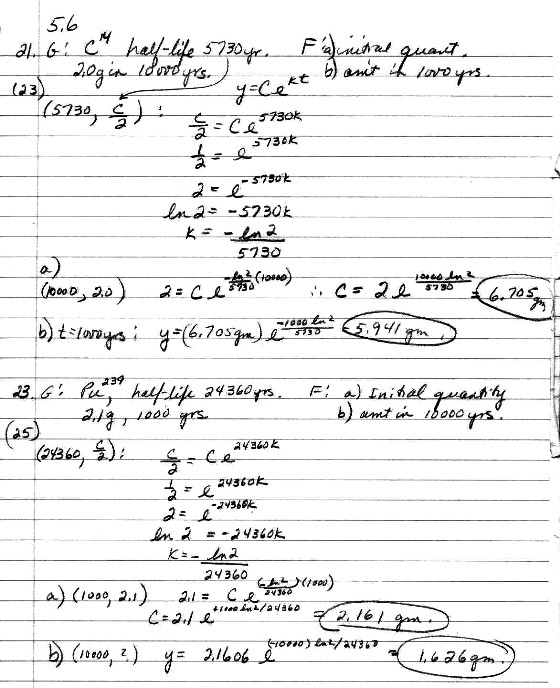 5.6
21. G: C¹⁴ half-life 5730 yr. F: a) initial quant.
2.0g in 10000 yrs. b) amt in 1000 yrs.
(23) y = Ce^{kt}
(5730, C/2): C/2 = Ce^{5730k}
1/2 = e^{5730k}
2 = e^{-5730k}
ln 2 = -5730k
k = -ln 2/5730
a)
(10000, 2.0) 2 = C e^{-ln 2/5730 (10000)} ∴ C = 2 e^{10000 ln 2/5730} = 6.705 gm
b) t = 1000 yrs: y = (6.705 gm) e^{-1000 ln 2/5730} = 5.941 gm.
23. G: Pu²³⁹, half-life 24360 yrs. F: a) Initial quantity
2.1g, 1000 yrs b) amt in 10000 yrs.
(25)
(24360, C/2): C/2 = Ce^{24360k}
1/2 = e^{24360k}
2 = e^{-24360k}
ln 2 = -24360k
k = -ln 2/24360
a) (1000, 2.1) 2.1 = C e^{(-ln 2/24360)(1000)}
C = 2.1 e^{+1000 ln 2/24360} = 2.161 gm.
b) (10000, ?) y = 2.1606 e^{(-10000) ln 2/24360} = 1.626 gm.